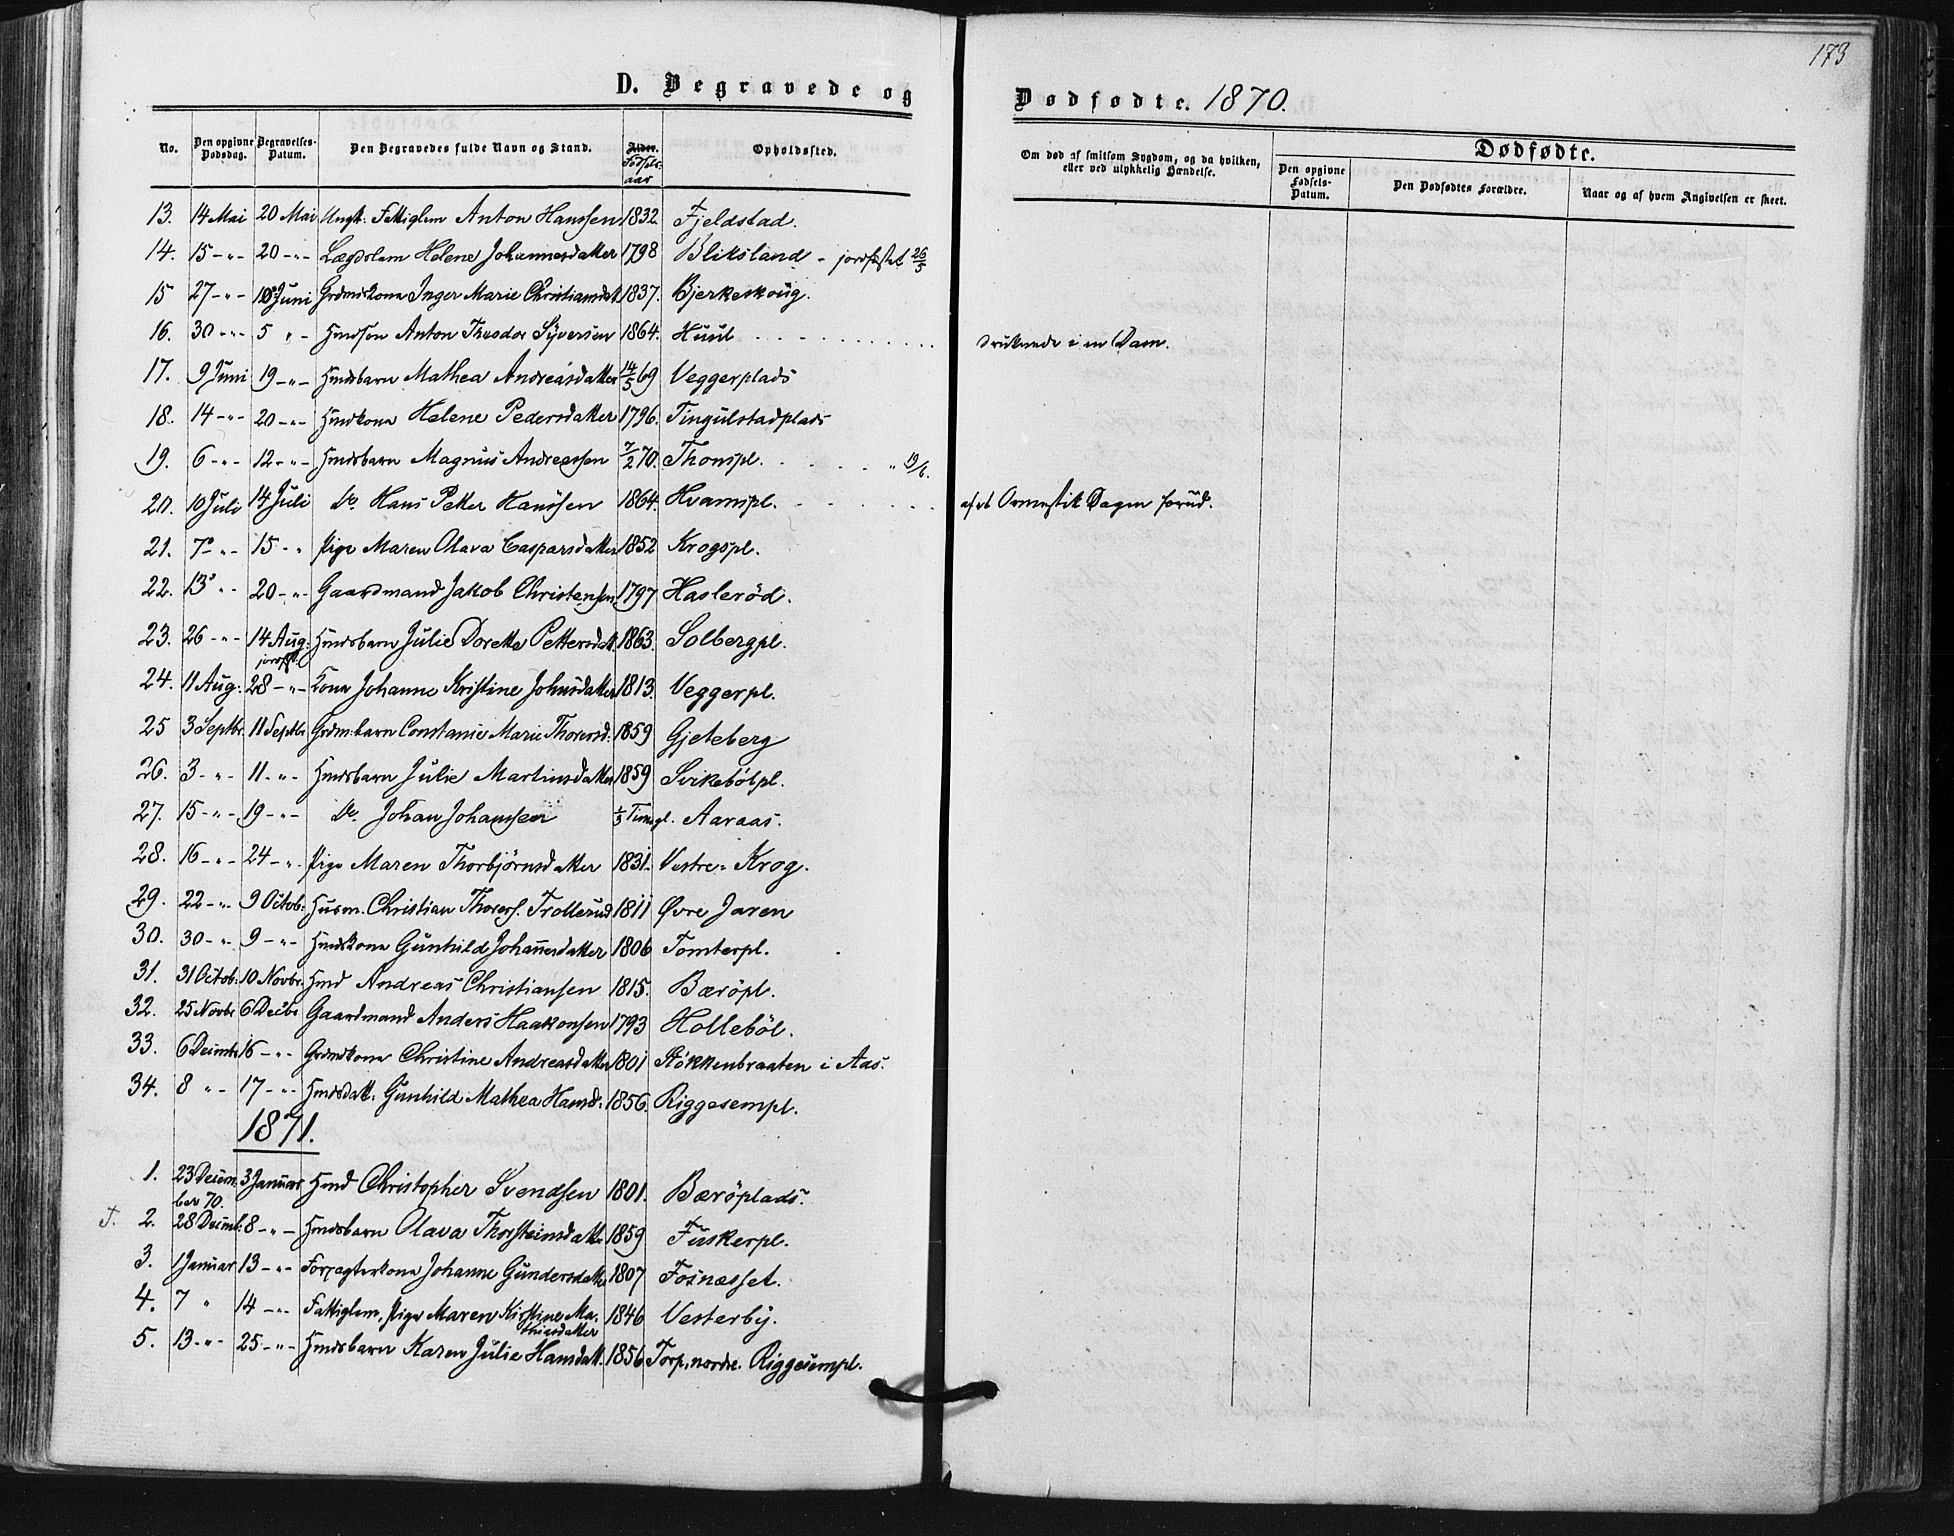 173
D. Begravede og Dødfødte. 1870.
No. Den opgivne Dødsdag. Begravelses-Datum. Den Begravedes fulde Navn og Stand. Alder. Fødselsaar Opholdssted. Om død af smitsom Sygdom, og da hvilken, eller ved ulykkelig Hændelse. Dødfødte.
Den opgivne Fødsels-Datum. Den Dødfødtes Forældre. Naar og af hvem Angivelsen er skeet.
13. 14 Mai 20 Mai Ungk. Fattiglem Anton Hanssen 1832. Fjeldstad.
14. 15 -"- 20 -"- Lægdslem Helene Johannesdatter 1798 Bliksland - jordfæstet 26/5
15 27 -"- Juni Grdmdskone Inger Marie Christiansdatt 1837. Bjerkeskoug.
16. 30 -"- 5 " - Hmdsøn Anton Theodor Syversen 1864. Huul druknede i en Dam.
17. 9 Juni 19 -"- Hmdsbarn Mathea Andreasdatter 14/5 69 Veggerplads
18. 14 -"- 20 -"- Hmdkone Helene Pedersdatter 1796. Tingulstadplads
19. 6 -"- 12 -"- Hmdsbarn Magnus Andreassen 7/2 70. Thonspl. " 19/6.
20. 10 Juli 14 Juli Do. Hans Petter Hanssen 1864. Hvamspl. af et Ormestik Dagen forud.
21. 7 -"- 15 - " Pige Maren Olava Casparsdatter 1852 Krogspl.
22. 13 " - 20 -"- Gaardmand Jakob Christensen 1797 Haslerød.
23. 26 -"- 14 Aug. jordf. Hmdsbarn Julie Dorette Pettersdatt. 1863. Solbergpl.
24. 11 Aug. 28 -"- Kone Johanne Kristine Johnsdatter 1813. Veggerpl.
25 3 Septbr. 11 Septbr. Grdm:barn Constanse Marie Thorersd. 1859 Gjeteberg
26. 3 -"- 11 -"- Hmdsbarn Julie Martinsdatter 1859 Svikebølpl.
27. 15 -"- 19 -"- Do. Johan Johanssen 1/3 Time gl. Aaraas.
28. 16 -"- 24 -"- Pige Maren Thorbjørnsdatter 1831. Vestre-Krog.
29. 22 -"- 9 Octob. Husm. Christian Thorers. Trollerud 1811 Øvre Jaren
30. 30 -"- 9 -"- Hmdskone Gunhild Johannesdatter 1806 Tomterpl.
31. 31 Octob. 10 Novbr. Hmd Andreas Christiansen 1815. Bærøpl.
32. 25 Novbr 6 Decbr Gaardmand Anders Haakonsen 1793 Hollebøl.
33. 6 Decembr 16 -"- Grdmdkone Christine Andreasdatter 1801 Støkkenbraaten i Aas.
34. 8 " - 17 -"- Hmdsdatt. Gunhild Mathea Hansd. 1856. Riggesempl.
1871.
1. 23 December 70. 3 Januar Hmd Christopher Svendsen 1801. Bærøplads.
T. 2. 28 Decemb. 8 -"- Hmdsbarn Olava Thorsteinsdatter 1859 Fuskerpl.
3. 1 Januar 13 -"- Forpagterkone Johanne Gundersdatter 1807 Fosnæsset.
4. 7 " 14 -"- Fattiglem, Pige Maren Kirstine Mathiasdatter 1846 Vesterby.
5. 13 -"- 25 -"- Hmdsbarn Karen Julie Hansdatt. 1856 Torp, nordre. Riggesempl.